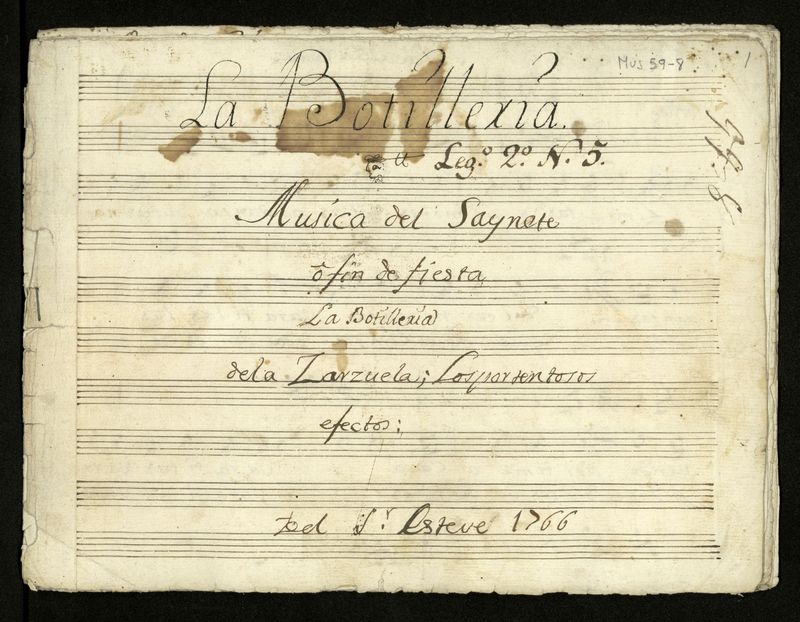 Mus 59-8
1
La Botilleria.
Leg.º 2.º N.º 5.
59-8
Musica del Saynete
ô fin de fiesta
La Botilleria
dela Zarzuela; Los portentosos
efectos:
Del S.r Esteve 1766